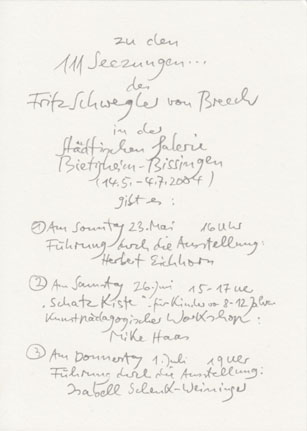 zu den
111 Seezungen...
des
Fritz Schwegler von Breech
in der
Städtischen Galerie
Bietigheim-Bissingen
(14.5. - 4.7.2004)
gibt es:
① Am Sonntag 23. Mai 16 Uhr
Führung durch die Ausstellung:
Herbert Eichhorn
② Am Samstag 26. Juni 15-17 Uhr
"Schatz Kiste" für Kinder von 8-12 Jahren
Kunstpädagogischer Workshop:
Mike Haas
③ Am Donnerstag 1. Juli 19 Uhr
Führung durch die Ausstellung:
Isabell Schenk-Weininger